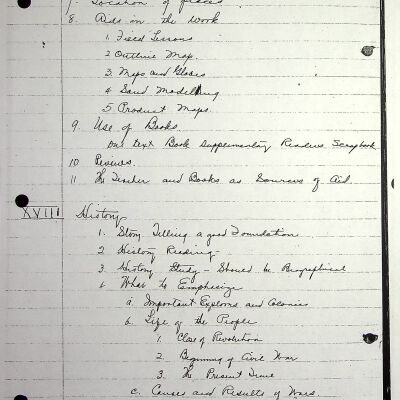 7. Location of places
8. Aids in the work
1. Field Lessons
2 Outline Map.
3. Maps and Globes
4 Sand Modelling
5 Product Maps.
9. Use of Books
One Text Book Supplementary Readers Scrapbook
10 Reviews.
11 The Teacher and Books as Sources of Aid.
XVIII History
1. Story Telling a good Foundation
2 History Reading
3. History Study - Should be Biographical
4 What to Emphasize
a. Important Explorers and Colonies
b. Life of the People
1. Close of Revolution
2. Beginning of Civil War
3. The Present Time
c. Causes and Results of Wars.